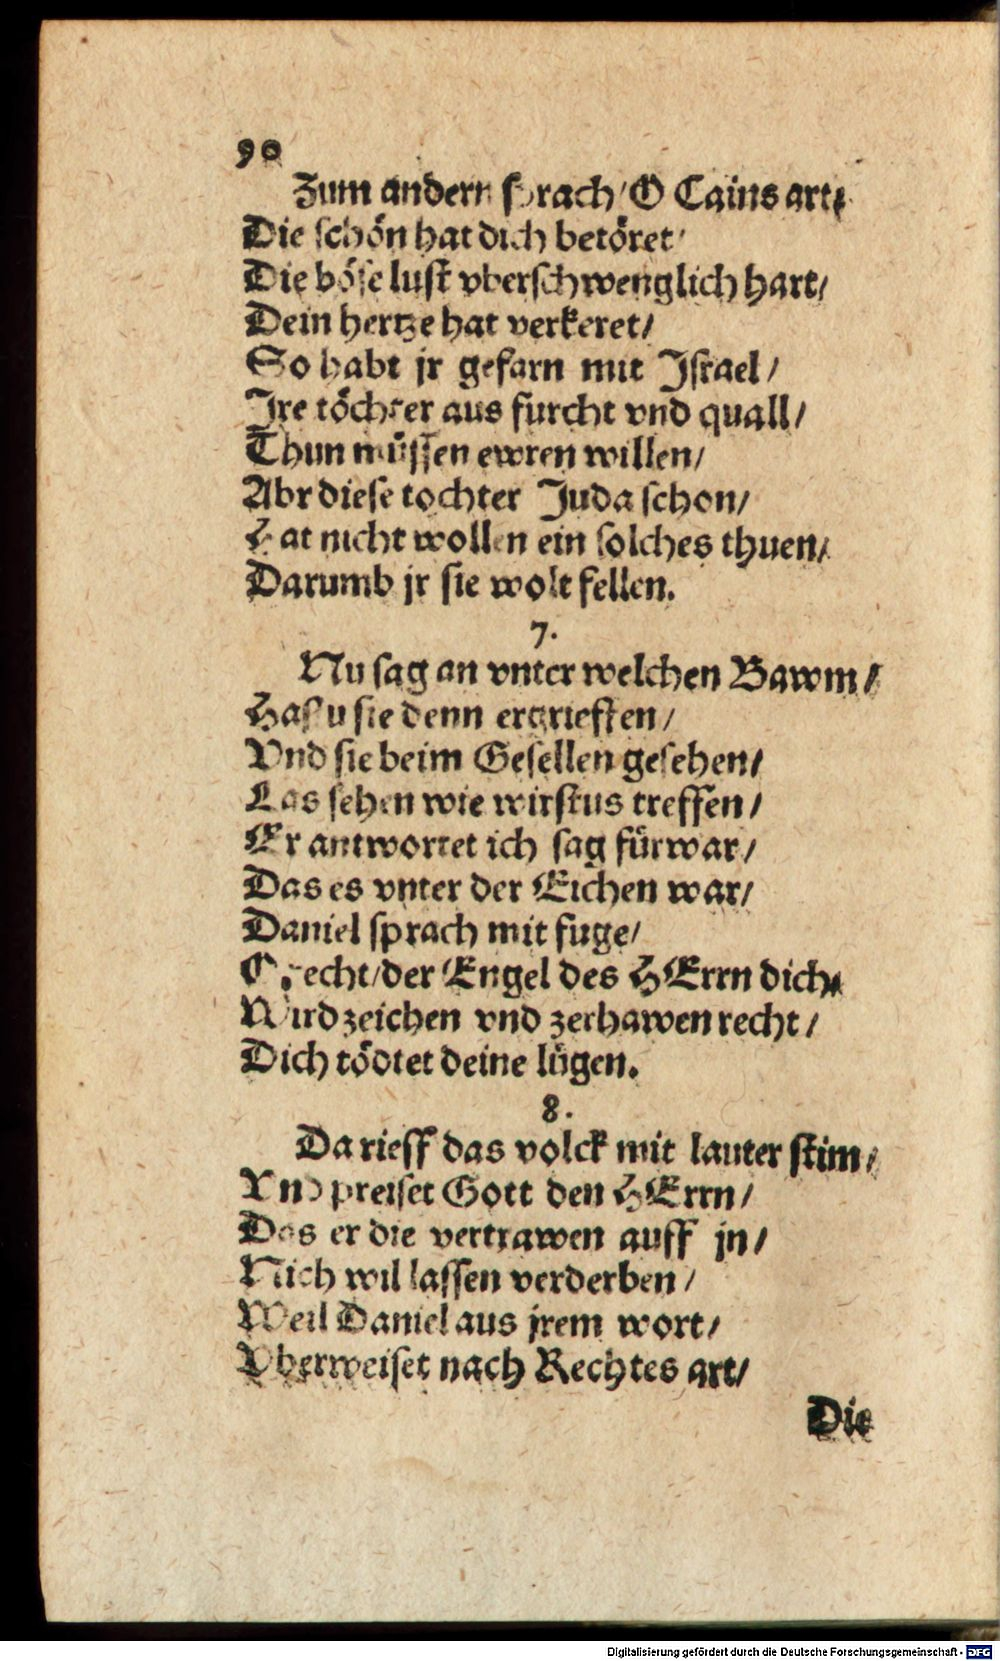 90
Zum andern sprach/O Cains art/
Die schön hat dich betöret/
Die böse lust vberschwenglich hart/
Dein hertze hat verkeret/
So habt jr gefarn mit Israel/
Jre töchter aus furcht vnd quall/
Thun müssen ewren willen/
Abr diese tochter Juda schon/
Hat nicht wollen ein solches thuen/
Darumb jr sie wolt fellen.
7.
Nu sag an vnter welchen Bawm/
Hastu sie denn ergrieffen/
Vnd sie beim Gesellen gesehen/
Las sehen wie wirstus treffen/
Er antwortet ich sag fürwar/
Das es vnter der Eichen war/
Daniel sprach mit fuge/
O recht/der Engel des HErrn dich/
Wird zeichen vnd zerhawen recht/
Dich tödtet deine lügen.
8.
Da rieff das volck mit lauter stim/
Vnd preiset Gott den HErrn/
Das er die vertrawen auff jn/
Nich wil lassen verderben/
Weil Daniel aus jrem wort/
Vberweiset nach Rechtes art/
Die
Digitalisierung gefördert durch die Deutsche Forschungsgemeinschaft - DFG